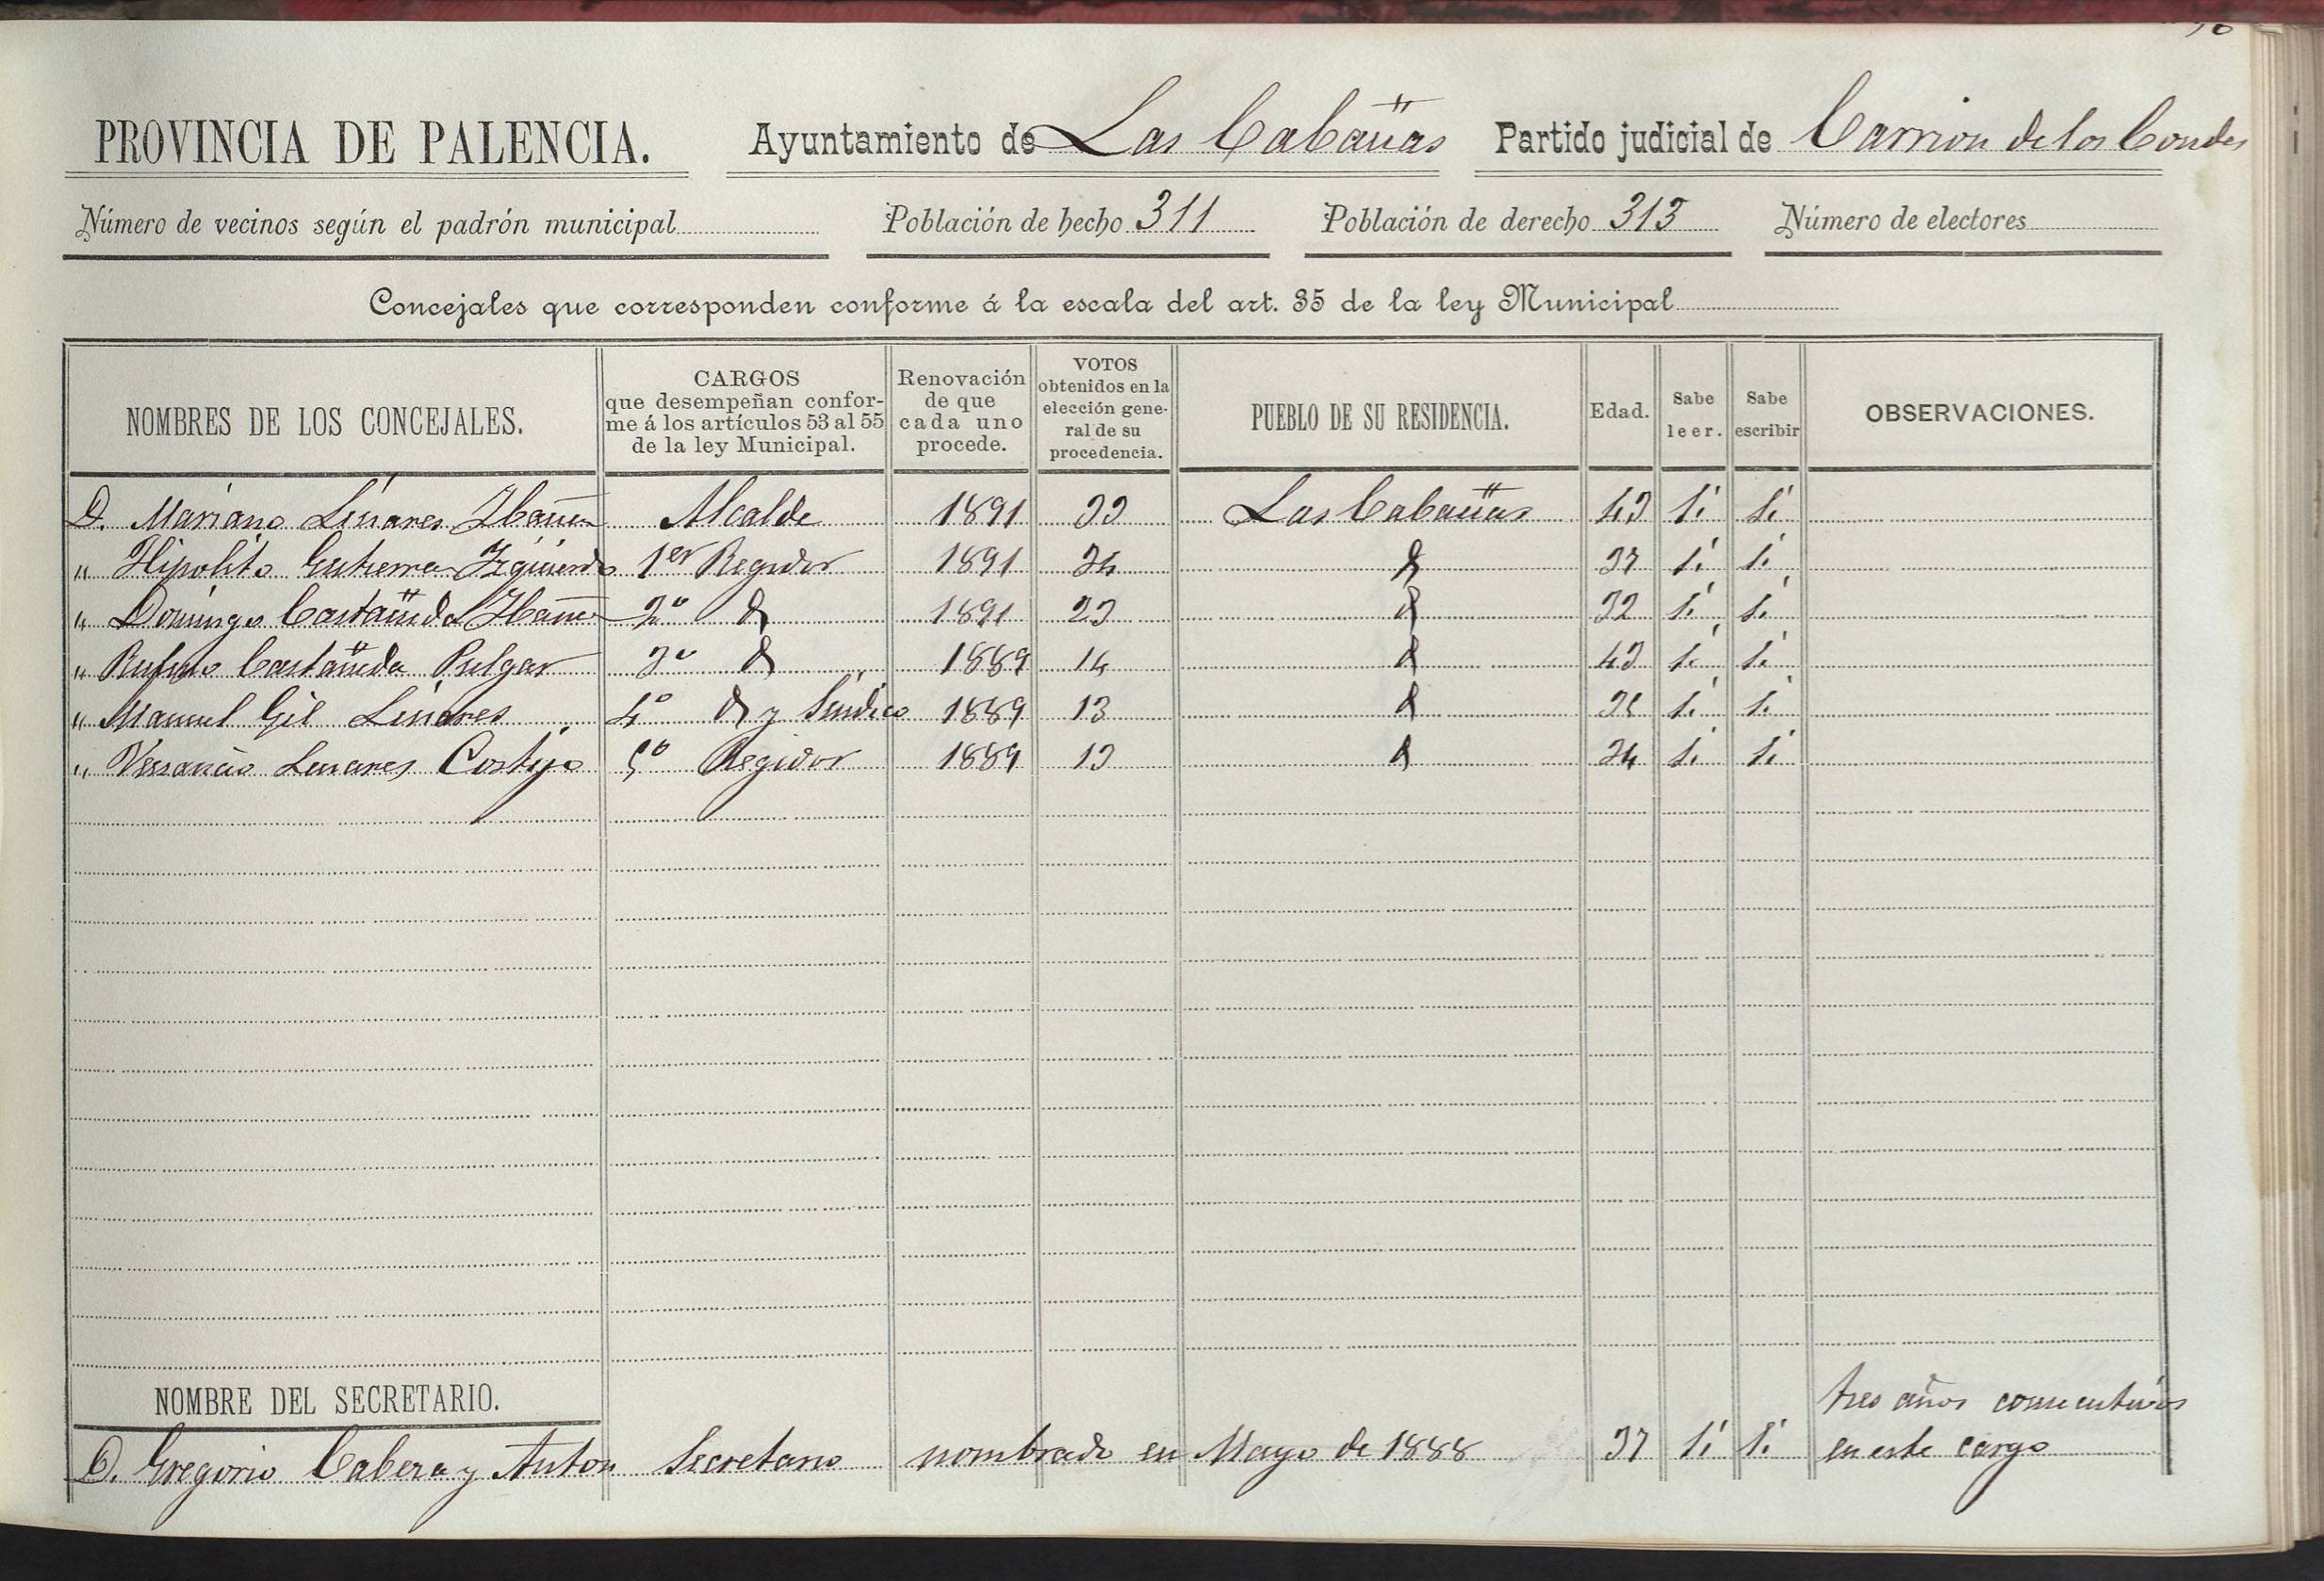 PROVINCIA DE PALENCIA. Ayuntamiento de Las Cabañas Partido judicial de Carrion de los Condes
Número de vecinos según el padrón municipal Población de hecho 311 Población de derecho 313 Número de electores
Concejales que corresponden conforme á la escala del art. 35 de la ley Municipal
NOMBRES DE LOS CONCEJALES. CARGOS que desempeñan conforme á los artículos 53 al 55 de la ley Municipal. Renovación de que cada uno procede. VOTOS obtenidos en la elección general de su procedencia. PUEBLO DE SU RESIDENCIA. Edad. Sabe leer. Sabe escribir OBSERVACIONES.
D. Mariano Linares Ibañez Alcalde 1891 33 Las Cabañas 43 Sí Sí
" Hipolito Gutierrez Izquierdo 1er Regidor 1891 24 37 Sí Sí
" Domingo Castañeda Ibañez 2º 1891 23 32 Sí Sí
" Rufino Castañeda Pulgar 3º 1889 14 43 Sí Sí
" Manuel Gil Linares 4º y Síndico 1889 13 Sí Sí
" Venancio Linares Cortijo 5º Regidor 1889 13 34 Sí Sí
NOMBRE DEL SECRETARIO.
D. Gregorio Cabeza y Anton Secretario nombrado en Mayo de 1888 37 Sí Sí tres años consecutivos
en este cargo